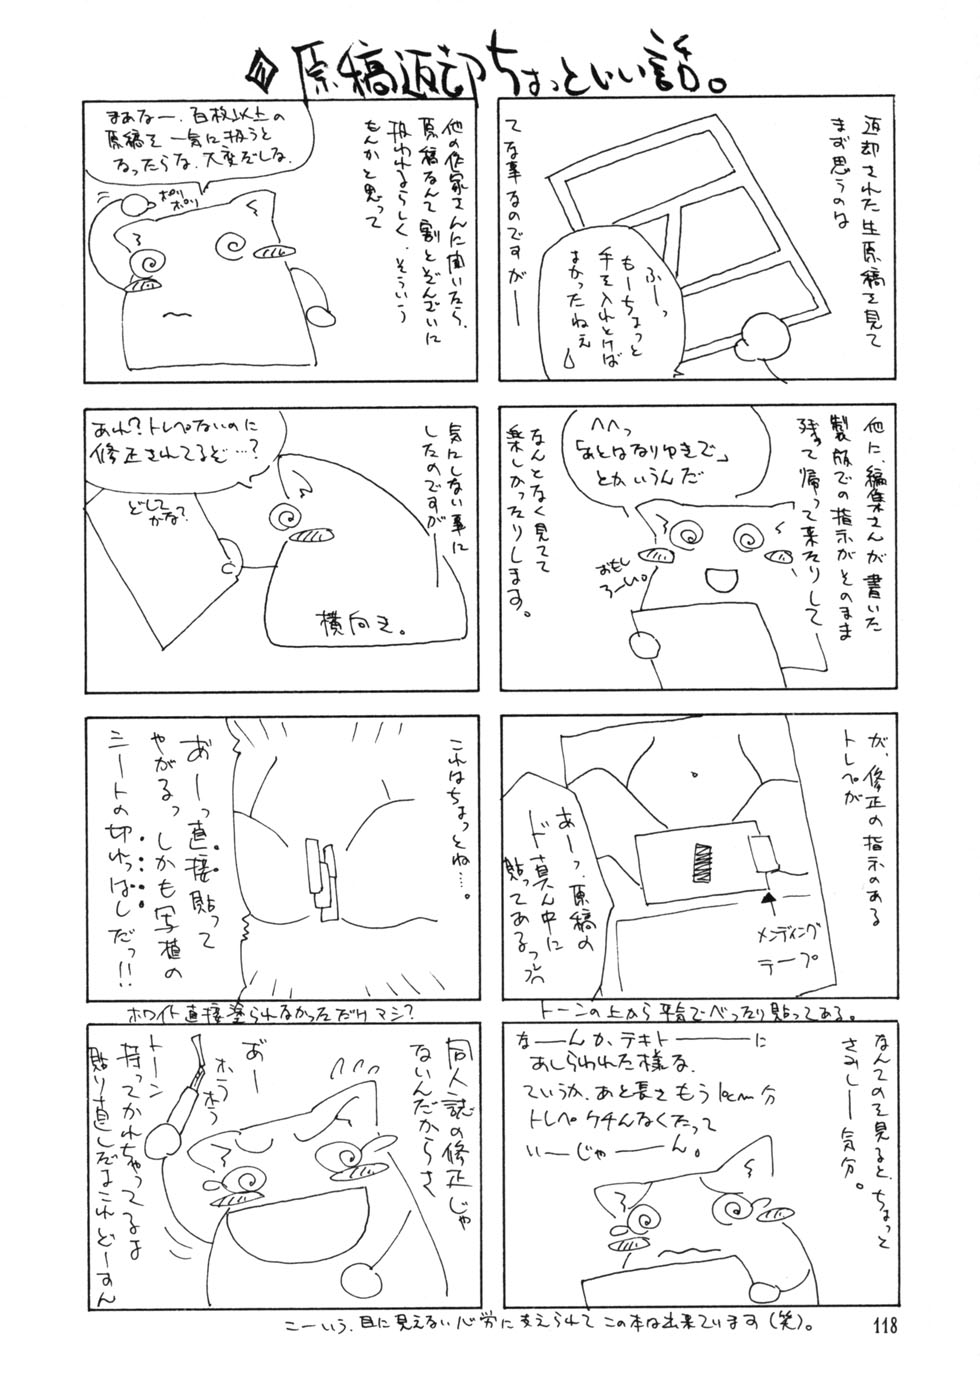 原稿返却ちょっといい話。
返却された生原稿を見て
まず思うのは
ふーっ
もーちょっと
手を入れとけば
よかったねぇ
てな事なのですが――
他に、編集さんが書いた
製版での指示がそのまま
残って帰って来たりして――
へへっ
「あとはなりゆきで」
とかいうんだ
おもし
ろーい。
なんとなく見てて
楽しかったりします。
が、修正の指示のある
トレペが
あーっ、原稿の
ド真ん中に
貼ってあるっ
メンディング
テープ
トーンの上から平気でべったり貼ってある。
なんてのを見ると、ちょっと
さみし――気分。
な――んか、テキト――――に
あしらわれた様な、
ていうか、あと長さもう10cm分
トレペケチんなくたって
い――じゃ――ん。
他の作家さんに聞いたら、
原稿なんて割とぞんざいに
扱われるらしく、そういう
もんかと思って
まぁなー、百枚以上の
原稿を一気に扱うと
なったらな、大変だしな。
ポリ
ポリ
気にしない事に
したのですが――
あれ?トレペないのに
修正されてるぞ…?
どして
かな?
横向き。
これはちょっとね…。
あーっ直接貼って
やがるっしかも写植の
シートの切れっぱしだっ!!
ホワイト直接塗られなかっただけマシ?
同人誌の修正じゃ
ないんだからさ
あ゛ー
ホラ
ホラ
トーン
持ってかれちゃってるよ
貼り直しだよこれどーすん
こーいう、目に見えない心労に支えられてこの本は出来ています(笑)。
118